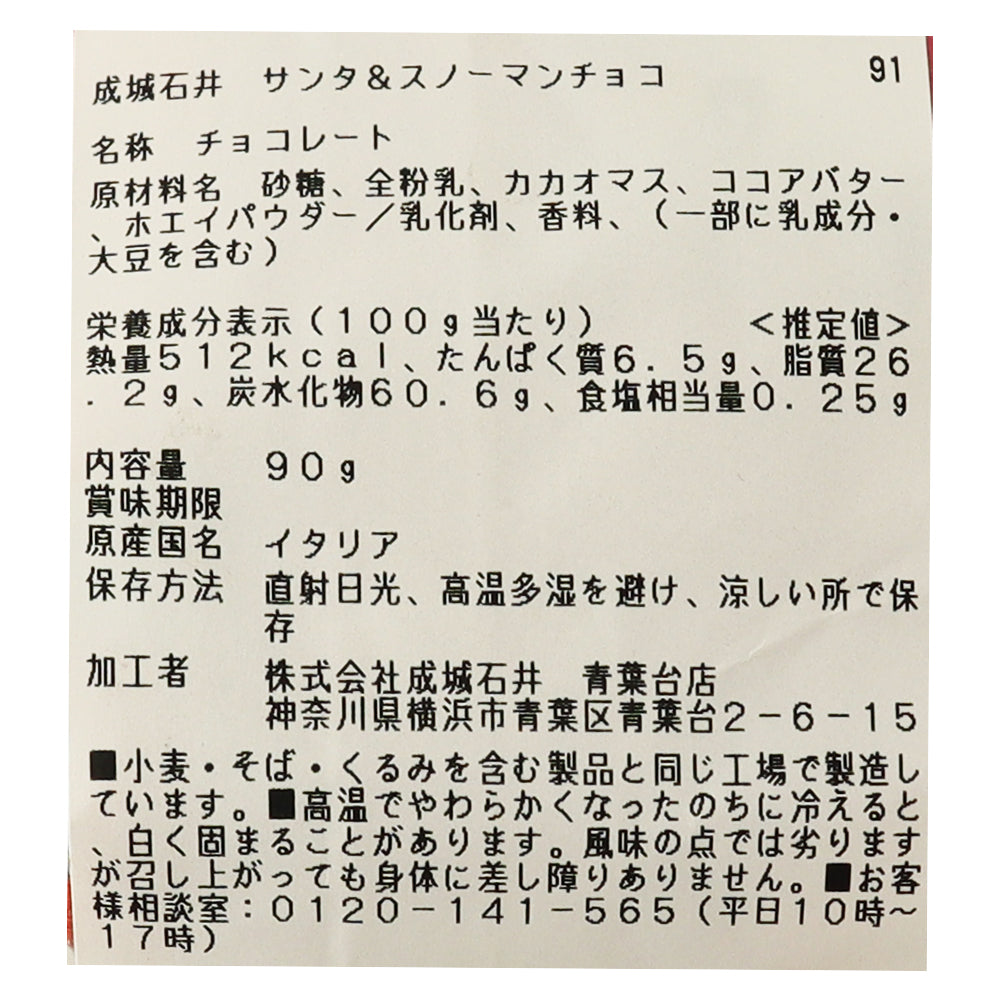 成城石井　サンタ＆スノーマンチョコ　91
名称　チョコレート
原材料名　砂糖、全粉乳、カカオマス、ココアバター
、ホエイパウダー／乳化剤、香料、（一部に乳成分・
大豆を含む）
栄養成分表示（１００ｇ当たり）　＜推定値＞
熱量５１２ｋｃａｌ、たんぱく質６．５ｇ、脂質２６
．２ｇ、炭水化物６０．６ｇ、食塩相当量０．２５ｇ
内容量　９０ｇ
賞味期限
原産国名　イタリア
保存方法　直射日光、高温多湿を避け、涼しい所で保
存
加工者　株式会社成城石井　青葉台店
神奈川県横浜市青葉区青葉台２－６－１５
■小麦・そば・くるみを含む製品と同じ工場で製造し
ています。■高温でやわらかくなったのちに冷えると
、白く固まることがあります。風味の点では劣ります
が召し上がっても身体に差し障りありません。■お客
様相談室：０１２０－１４１－５６５（平日１０時～
１７時）